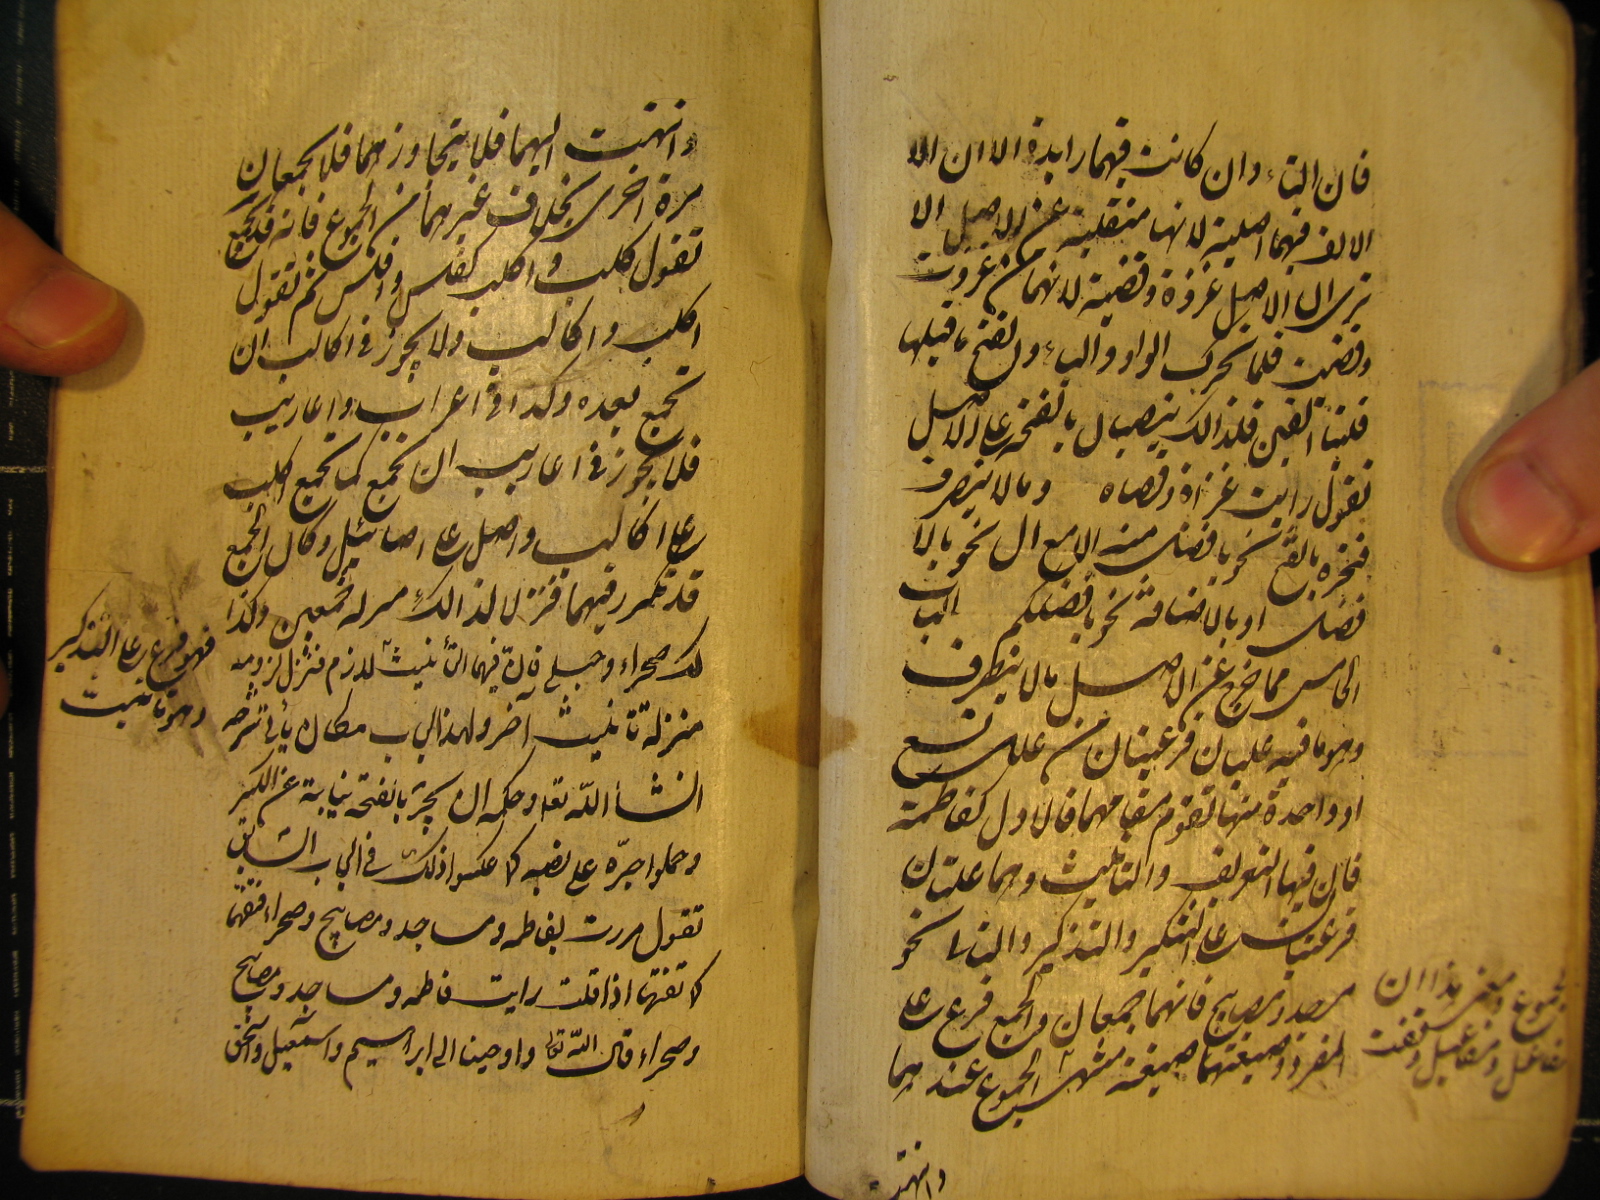 فان التاء وان كانت فيهما زايدة الا ان الا
الالف فيهما اصلية لانها منقلبة عن الاصل الا
ترى ان الاصل غزوة وقضية لانهما من غزوت
وقضيت فلما تحرك الواو والياء وانفتح ما قبلها
قلبتا الفين فلذالك ينصبان بالفتحة على الاصل
تقول رايت غزاة وقضاة وما لا ينصرف
فنجره بالفتح نحو بافضل منه الا مع ال نحو بالا
فضل او بالاضافة نحو بافضلكم الباب
الخامس مما خرج عن الاصل ما لا ينصرف
وهو ما فيه علتان فرعيتان من علل تسع
او واحدة منها تقوم مقامهما فالاول كفاطمة
فان فيها التعريف والتانيث وهما علتان
فرعيتان على التنكير والتذكير والثاني نحو
مساجد ومصابيح فانهما جمعان والجمع فرع على
المفرد وصيغتهما صيغة منتهى الجموع عند هما
الجموع ومعنى هذا ان
مفاعل ومفاعيل وقفت
وانتهت
وانتهت اليهما فلا يتجاوزهما فلا يجمعان
مرة اخرى بخلاف غيرهما من الجموع فانه قد يجمع
تقول كلب واكلب كفلس وافلس ثم تقول
اكلب واكالب ولا يجوز في اكالب ان
تجمع بعده وكذا في اعراب واعاريب
فلا يجوز في اعاريب ان تجمع كما تجمع اكلب
على اكالب واصل على اصائل وكان الجمع
قد تكرر فيهما فنزلا لذالك منزلة جمعين وكذا
لك صحراء وحبلى فان فيهما التأنيث لازم فنزل لزومه
منزلة تانيث آخر ولهذا الباب مكان يأتي شرحه
انشأ الله تعا وحكمه ان يجر بالفتحة نيابة عن الكسر
وحملوا جره على نصبه كما عكسوا ذلك في الباب السابق
تقول مررت بفاطمه ومساجد ومصابيح وصحراء فتفتحها
كما تفتحها اذا قلت رايت فاطمه ومساجد ومصابيح
وصحراء قال الله تعالى واوحينا الى ابراهيم واسمعيل واسحق
فهو فرع على التذكير
وهو تانيث